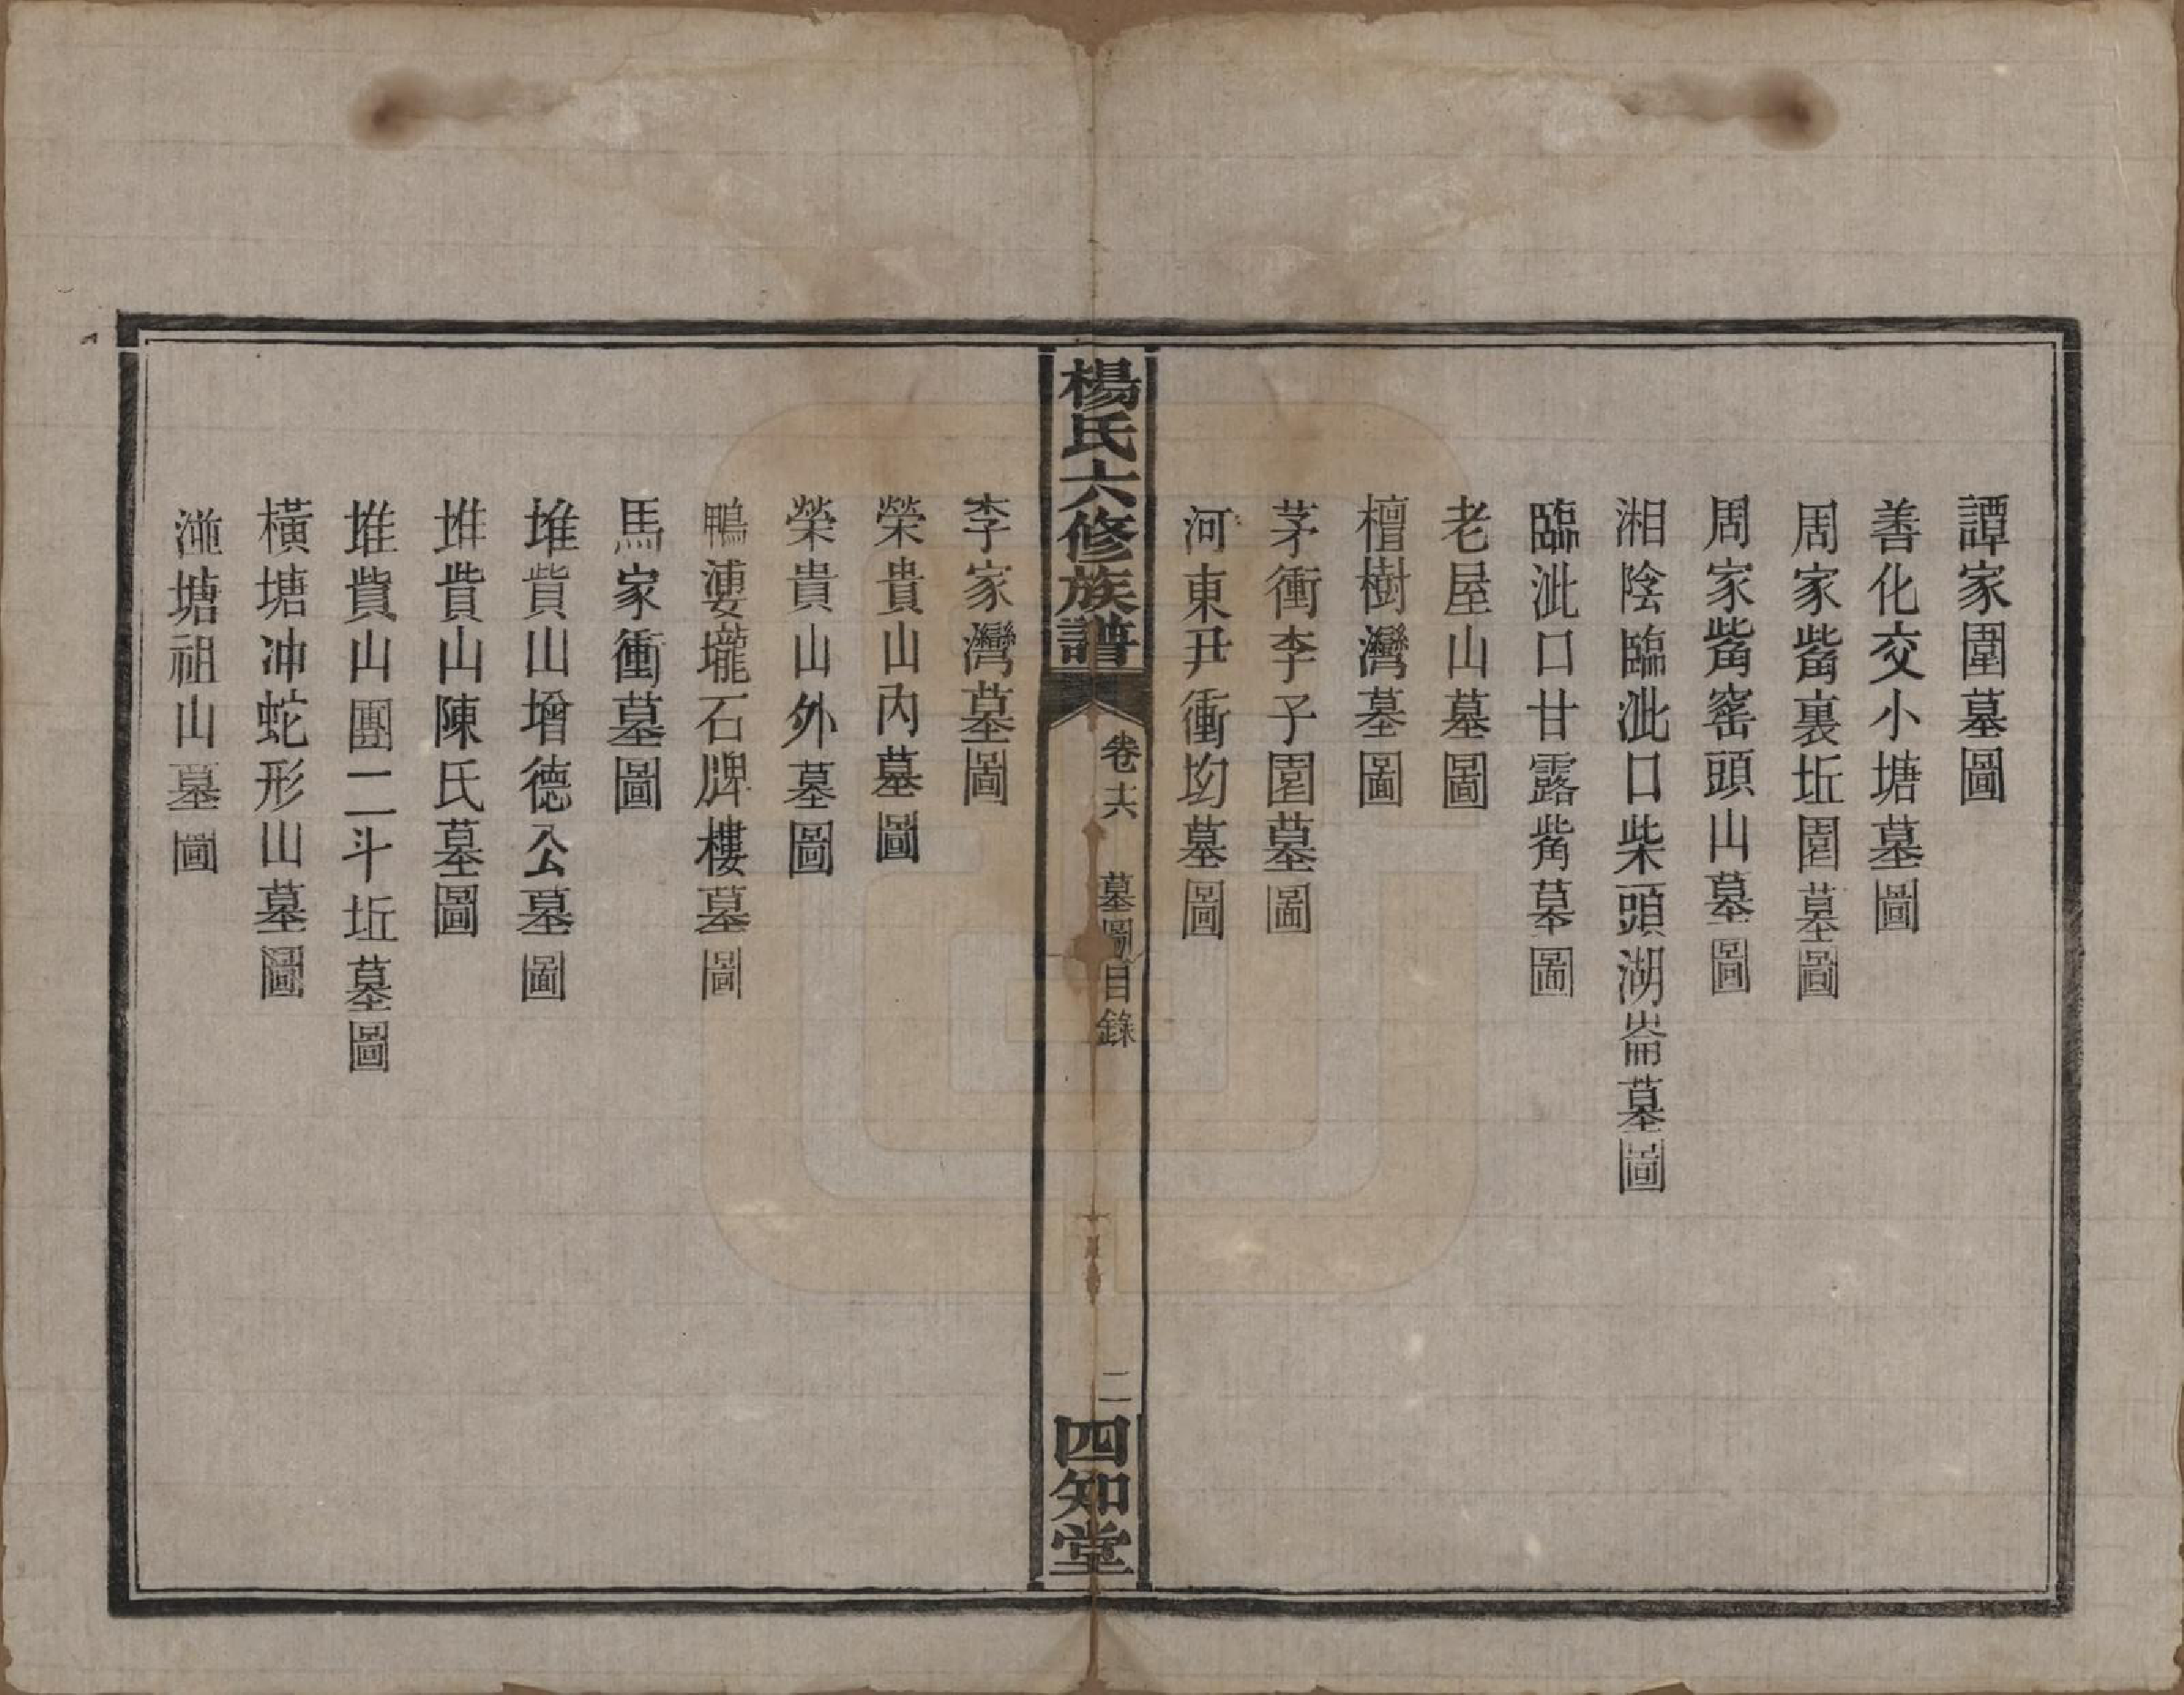 譚家園墓圖
善化交小塘墓圖
周家觜裏坵園墓圖
周家觜窰頭山墓圖
湘陰臨泚口柴頭湖崙墓圖
臨泚口甘露觜墓圖
老屋山墓圖
檀樹灣墓圖
茅衝李子園墓圖
河東尹衝均墓圖
楊氏六修族譜
卷十六
墓圖目錄
二
四知堂
李家灣墓圖
榮貴山內墓圖
榮貴山外墓圖
鴨漊壠石牌樓墓圖
馬家衝墓圖
堆貲山增德公墓圖
堆貲山陳氏墓圖
堆貲山團二斗坵墓圖
橫塘冲蛇形山墓圖
塘祖山墓圖